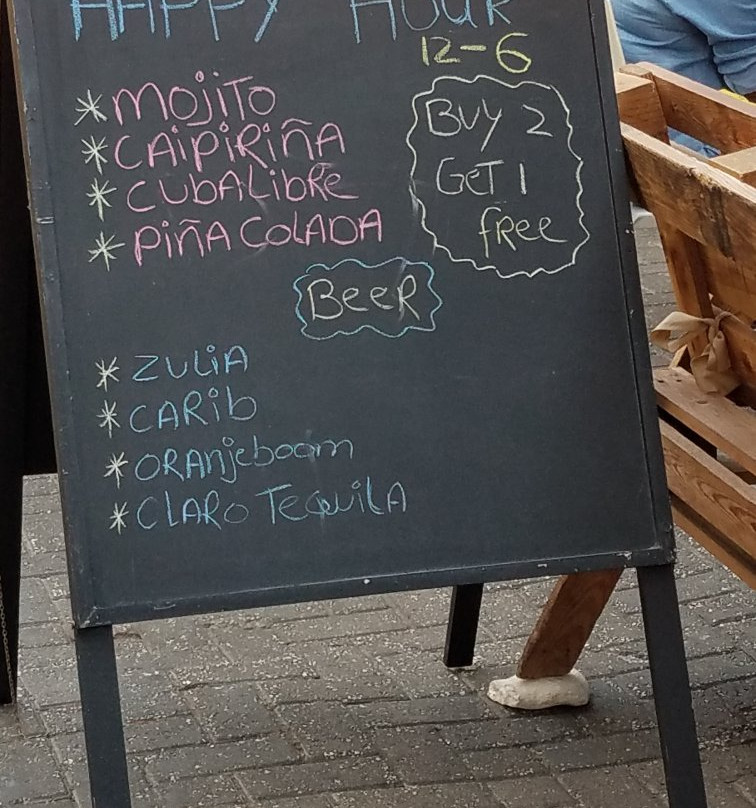 HAPPY HOUR
12-6
* MOJITO
* CAIPIRIÑA
* CUBALIBRE
* PIÑA COLADA
BUY 2
GET 1
FREE
BEER
* ZULIA
* CARIB
* ORANJEBOOM
* CLARO TEQUILA